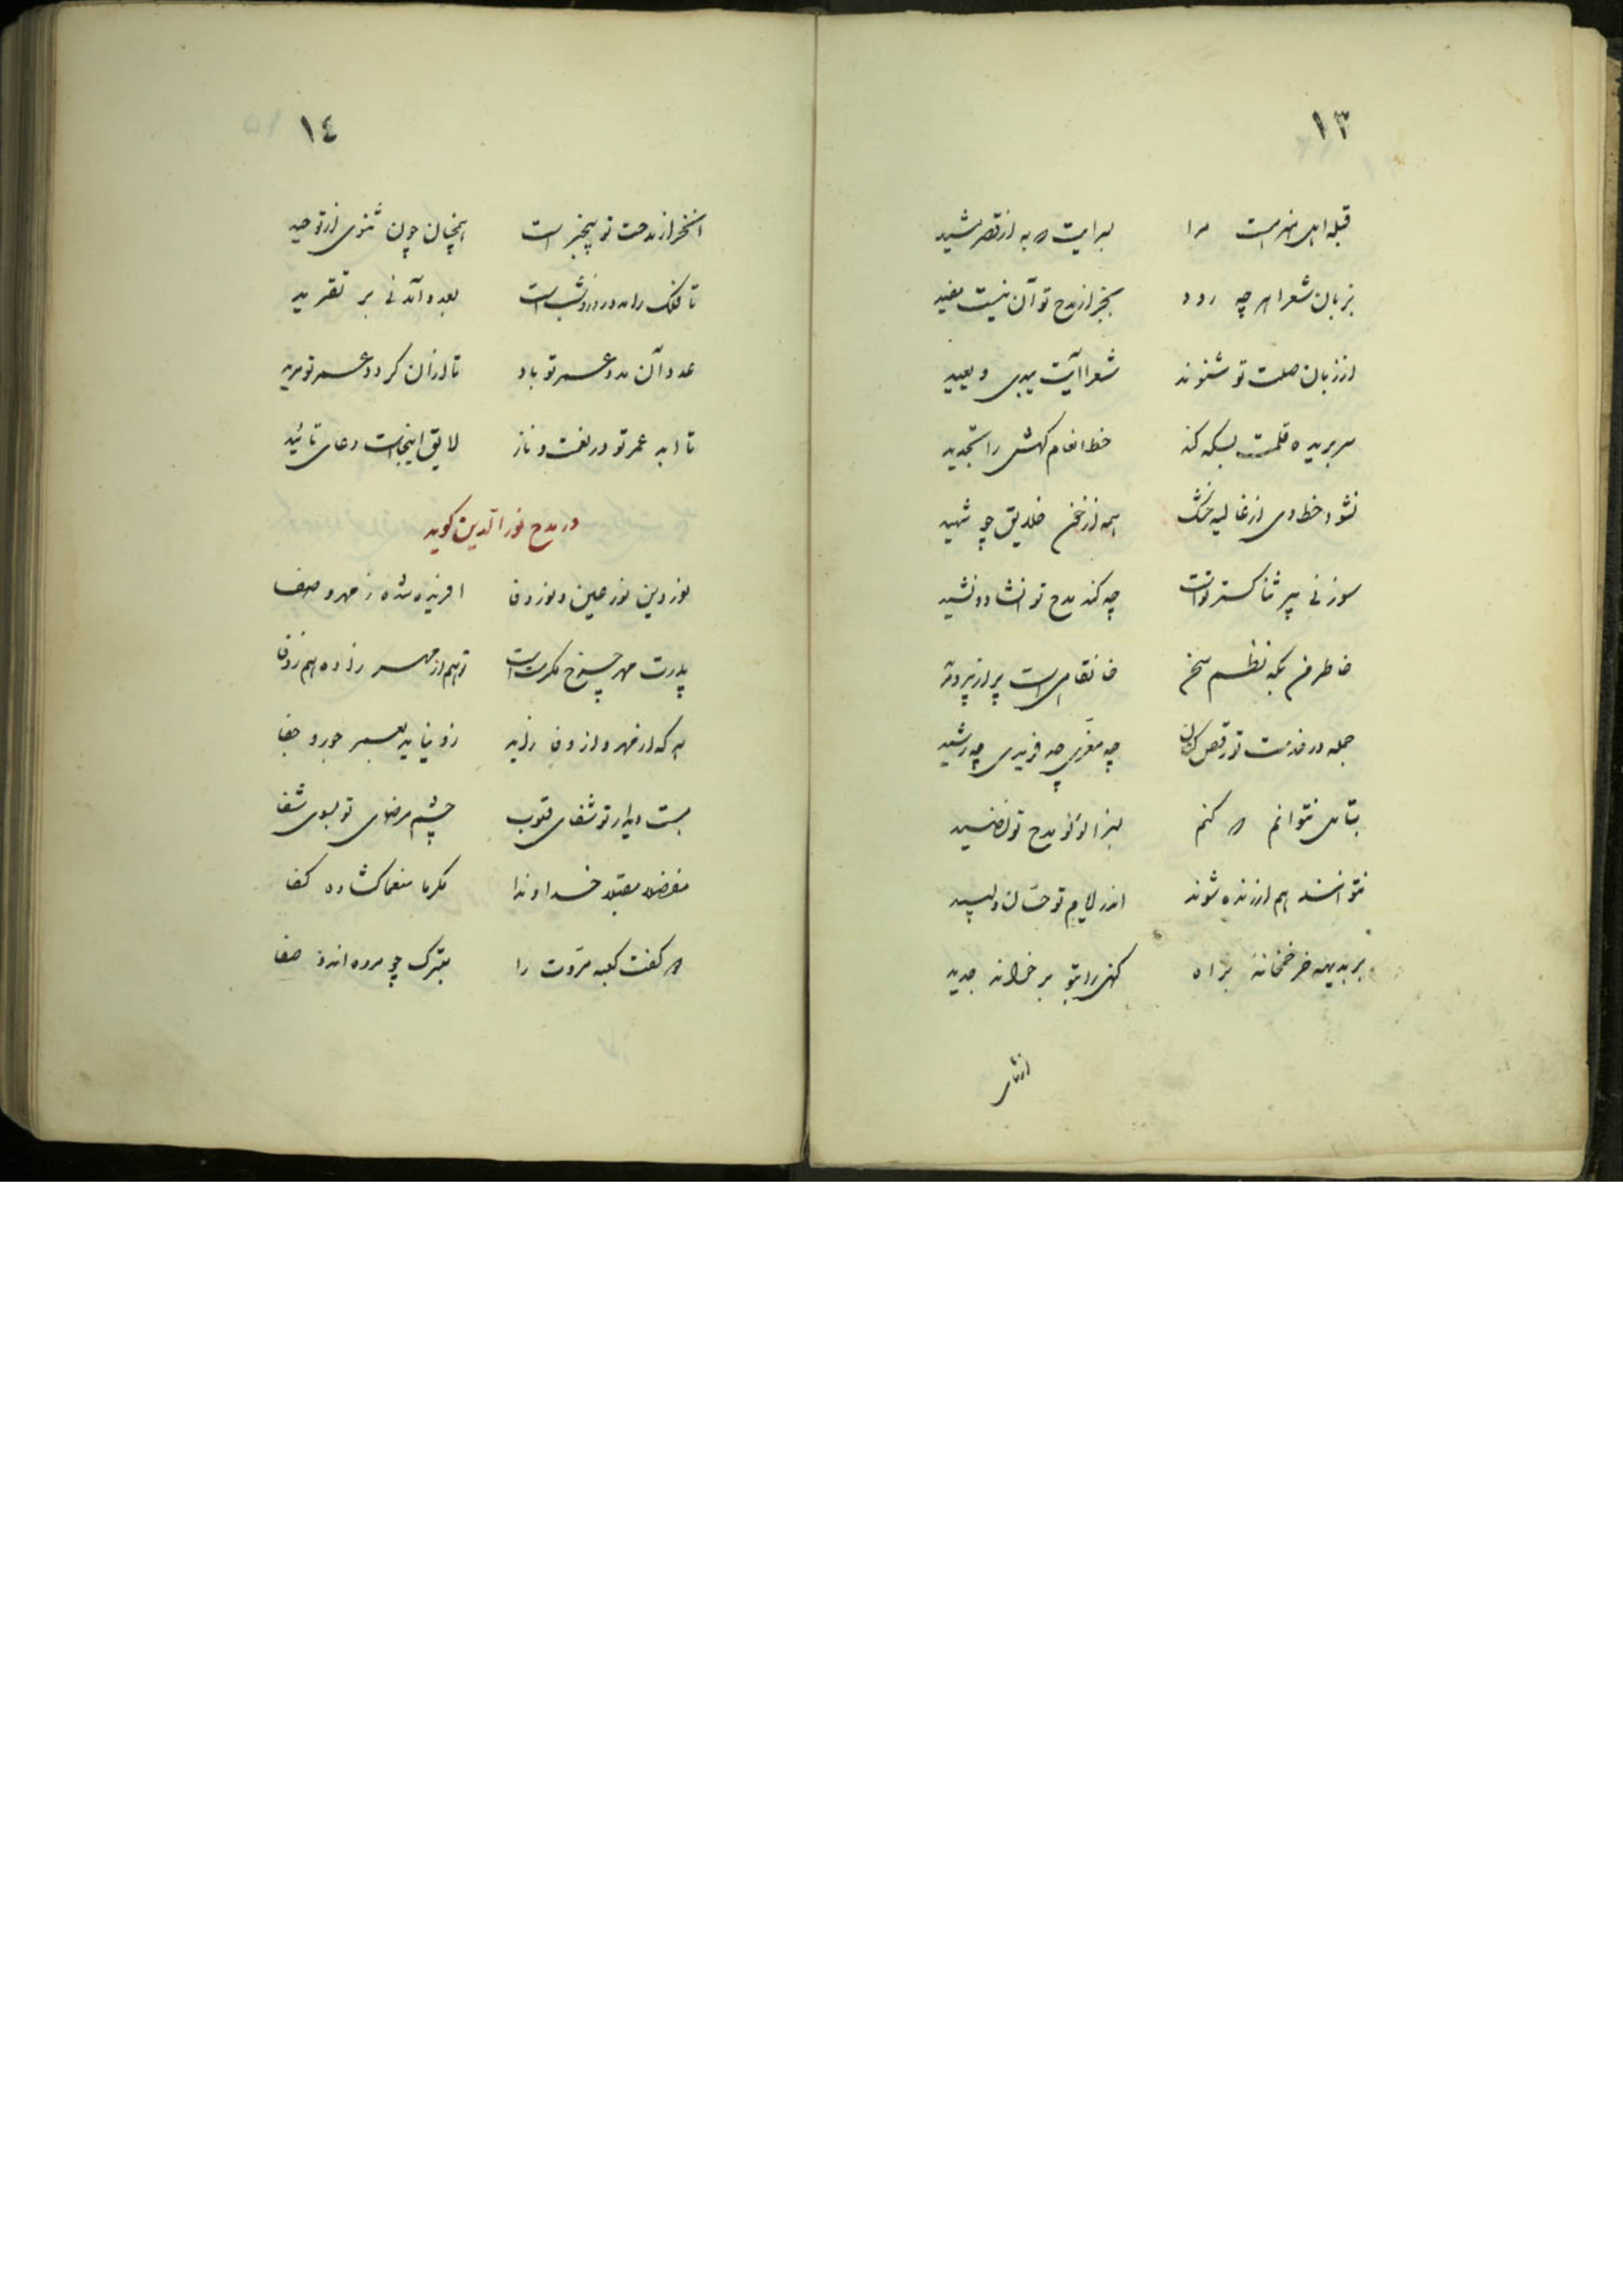 ١٣
قبله اهل هنر هست مرا سرایت که به از قصر مشید
بزبان شعرا هر چه رود بجز از مدح تو آن نیست مفید
از زبان صلت تو شنوند شعرا آیت یبدی و یعید
سر بریده قلمت بسکه کند خط انعام کهن را تجدید
نشود خط وی از غالیه خشک همه از خلایق چو شهید
سوزنی پیر ثنا گستر تست چه کند مدح تو انشاد و نشید
خاطر من بگه نظم سخن خانقاهی است پر از پیر و مرید
جمله در خدمت تو رقص کنان چه معزی چه فریدی چه رشید
بتامل نتوانم که کنم بسزا مدح تو
نتوانند هم ار زنده شوند اندر ایام تو حسان و لبید
بر بدیهه ز خمخانه براه کهنی را بتو بر خواند جدید
ازثنای
١٤
از مدحت تو بیخبر است همچنان چون ثنوی از توحید
تا فلک را مدد روز و شب است بعدد آمدنی بر تقرید
عدد آن مدد عمر تو باد تا از آن گردد عمر تو مزید
تا ابد عمر تو در نعمت و ناز لایق اینجاست دعای تائید
در مدح نورالدین گوید
نور دین نور عین و نور وفا آفریده شده ز مهر و صفا
پدرت مهر چرخ مکرمت است تو هم از مهر زاده هم ز وفا
هر که از مهر و از وفا زاید زو نیاید بعمر جور و جفا
هست دیدار تو شفای قلوب چشم مرضای تو بسوی شفا
مفضلا مقبلا خداوندا مکرما منعما گشاده کفا
که گفت کعبه مروت را بتبرک چو مروه اند و صفا